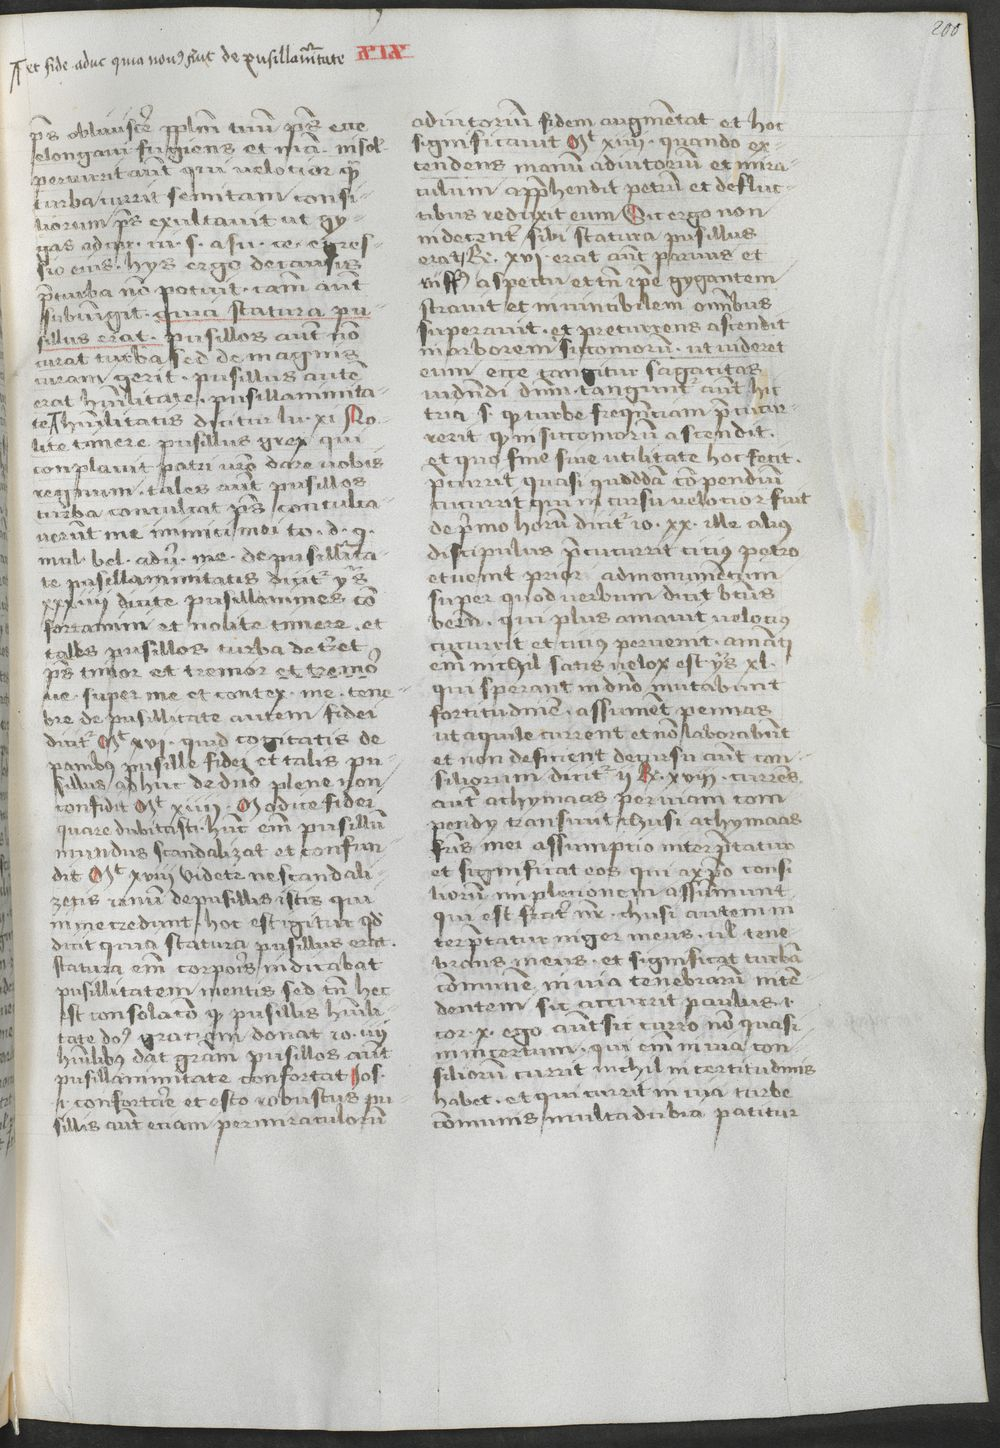 200
et fide aduc quia nouꝰ ſiut de puſillaītate XIX
p̄s obliuiſcere ppl̄m tuū p̄s ecce
elongaui fugiens et mā. in ſol.
percurrit aūt qui uelocior q̄
turba currit ſemitam conſi-
liorum p̄s exultauit ut gy-
gas ad cur. ui. ſ. a ſu. ce. egreſ-
ſio eius. hys ergo de cauſis
p̄ turba nō potuit. cām aūt
ſubiūgit. quia ſtatura pu
ſillus erat. puſillos aūt nō
curat turba ſed de magnis
curam gerit. puſillus autē
erat hūilitate. puſillanimita-
te hūilitatis dicitur lu. xi No-
lite timere puſillus grex qui
conplacuit patri uēo dare uobis
regnum. tales aūt puſillos
turba conculcat p̄s conculca
uerūt me inimici mei to. d. q̄.
mul. bel. aduᵉ. me. de puſillaīta-
te puſillanimitatis dicitᵉ yᵃs
xxxiiii dicite puſillanimes cō
fortamini et nolite timere. et
tales puſillos turba deteret
p̄s timor et tremor et tremoꝰ
ue. ſuper me et contex. me. tene-
bre de puſillitate autem fidei
dicitᵉ Mt xvi. quid cogitatis de
panibus puſille fidei et talis pu-
ſillus adhuc de dn̄o plene non
confidit Mt xiiii. Modice fidei
quare dubitaſti. hūc eīm puſillū
mundus ſcandalizat et confun
dit Mt xviii Videte ne ſcandali
zetis unum de puſillis iſtis qui
in me credunt. hoc eſt igitur qd̄
dicit quia ſtatura puſillus erat.
ſtatura eīm corporis indicabat
puſillitatem mentis ſed tn̄ hec
eſt conſolacō q̄ puſillis hūili
tate doꝰ gratiam donat io. iiij
hūilibꝰ dat grām puſillos aūt
puſillanimitate confortat Ios.
i confortare et eſto robuſtus pu-
ſillis aūt etiam per miraculorū
adiutoriū fidem augmētat et hoc
ſignificauit Mt xiiii. quando ex-
tendens manū adiutoriū et mira
culum apphendit petrū et de fluc-
tibus reduxit eum Sic ergo non
indecent ſibi ſtatura puſillus
erat i Re. xvi. erat aūt paruus et
ruffꝰ aſpectu et tn̄ ip̄e gygantem
ſtrauit et inuincibilem omībus
ſuperauit. et precurrens aſcendit
in arborem ſicomorū. ut uideret
eum ecce tangitur ſagacitas
uidēndi dūm tangūtᵉ aūt hic
tria ſ. q̄ turbe frequēciam p̄cucur-
rerit q̄ in ſicomorū aſcendit.
et quo fine ſiue utilitate hoc fecit.
p̄currit quaſi quoddā cōpendiū
cucurrit qui in curſu uelocior fuit
de p̄mo horū dicitᵉ io. xx. ille aliꝰ
diſcipulus p̄cucurrit citiꝰ petro
et uenit prior ad monumētum
ſuper quod uerbum dicit btūs
bern̄. qui plus amauit uelociꝰ
cucurrit et citiꝰ peruenit. amāti
eīm nichil ſatis uelox eſt yᵃs xl.
qui ſperant in dn̄o mutabunt
fortitudinē. aſſument pennas
ut aquile current et nō laborabūt
et non deficient de curſu aūt con-
ſiliorum dicitᵉ ij Re. xviij. currēs
aūt achymaas per uiam com
pendy tranſiuit chuſi achymaas
fr̄is mei aſſumptio interp̄tatur
et ſignificat eos qui a xp̄o conſi
liorū impletionem aſſumunt
qui eſt frater nr̄. chuſi autem in
terp̄tatur niger meus. uel tene
broſus meus. et ſignificat turbā
cōmunē in uia tenebrarū incē
dentem ſic accurrit paulus. i.
cor. x. ego aūt ſic curro nō quaſi
in incertum. qui eīm in uia con
ſiliorū currit nichil in certitudinis
habet. et qui currit in uia turbe
cōmunis multa dubia patitur